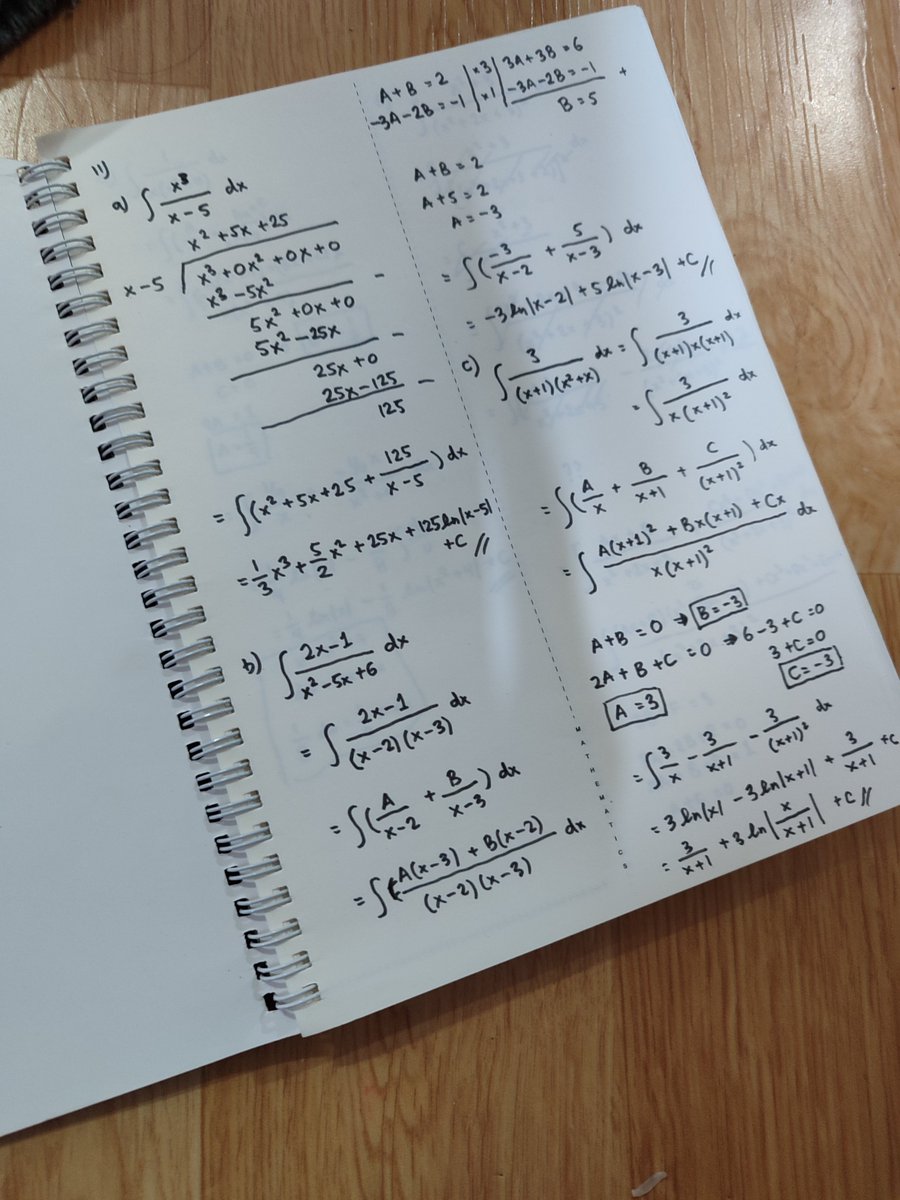 11)
a) ∫ x³/(x-5) dx
x² + 5x + 25
x-5 √(x³ + 0x² + 0x + 0)
x³ - 5x² -
5x² + 0x + 0
5x² - 25x -
25x + 0
25x - 125 -
125
= ∫(x² + 5x + 25 + 125/(x-5)) dx
= 1/3 x³ + 5/2 x² + 25x + 125 ln|x-5|
+ C //
b) ∫ (2x-1)/(x²-5x+6) dx
= ∫ (2x-1)/((x-2)(x-3)) dx
= ∫(A/(x-2) + B/(x-3)) dx
= ∫ (A(x-3) + B(x-2))/((x-2)(x-3)) dx
A + B = 2 | ×3 | 3A + 3B = 6
-3A - 2B = -1 | ×1 | -3A - 2B = -1 +
B = 5
A + B = 2
A + 5 = 2
A = -3
= ∫(-3/(x-2) + 5/(x-3)) dx
= -3 ln|x-2| + 5 ln|x-3| + C //
c) ∫ 3/((x+1)(x²+x)) dx = ∫ 3/((x+1)x(x+1)) dx
= ∫ 3/(x(x+1)²) dx
= ∫(A/x + B/(x+1) + C/(x+1)²) dx
= ∫ (A(x+1)² + Bx(x+1) + Cx)/(x(x+1)²) dx
A + B = 0 → B = -3
2A + B + C = 0 → 6 - 3 + C = 0
3 + C = 0
A = 3
C = -3
= ∫ 3/x - 3/(x+1) - 3/(x+1)² dx
= 3 ln|x| - 3 ln|x+1| + 3/(x+1) + C
= 3/(x+1) + 3 ln|x/(x+1)| + C //
MATHEMATICS